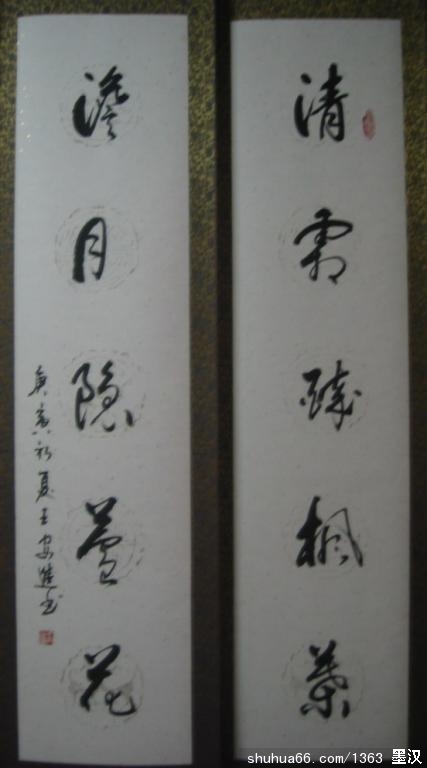 清霜醉楓葉
澹月隱蘆花
庚寅初夏王安進书
shuhua66.com/1363 墨汉